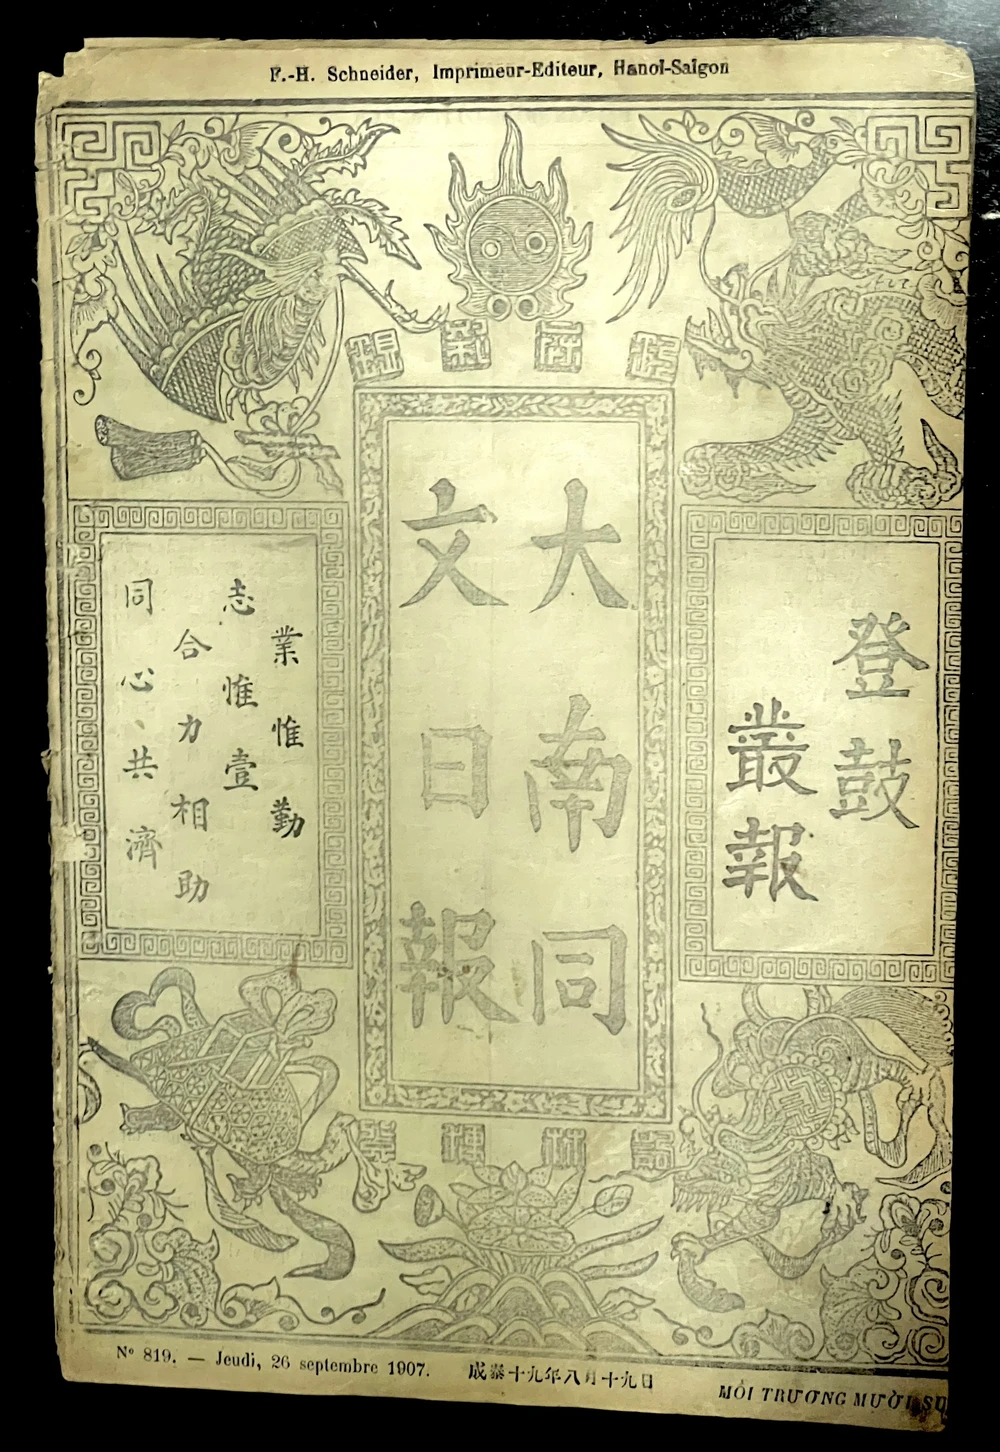 F.-H. Schneider, Imprimeur-Editeur, Hanoï-Saïgon
登鼓
叢報
大南同
文日報
業惟勤
志惟壹
合力相助
同心、共濟
Nº 819. — Jeudi, 26 septembre 1907. 成泰十九年八月十九日
MỖI TRƯƠNG MƯỜI SU